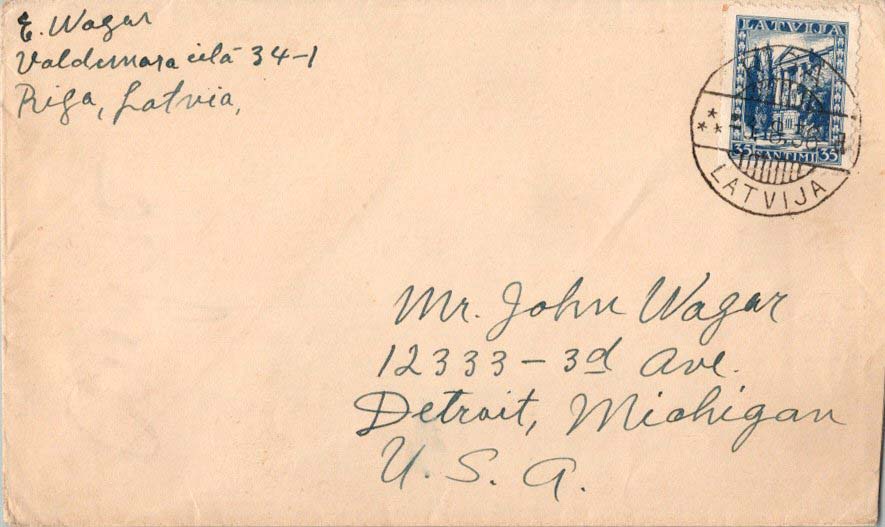 E. Wagar
Valdemara ielā 34-1
Riga, Latvia,
LATVIJA
35 SANTIMI 35
LATVIJA
Mr. John Wagar
12333 - 3d Ave.
Detroit, Michigan
U. S. A.